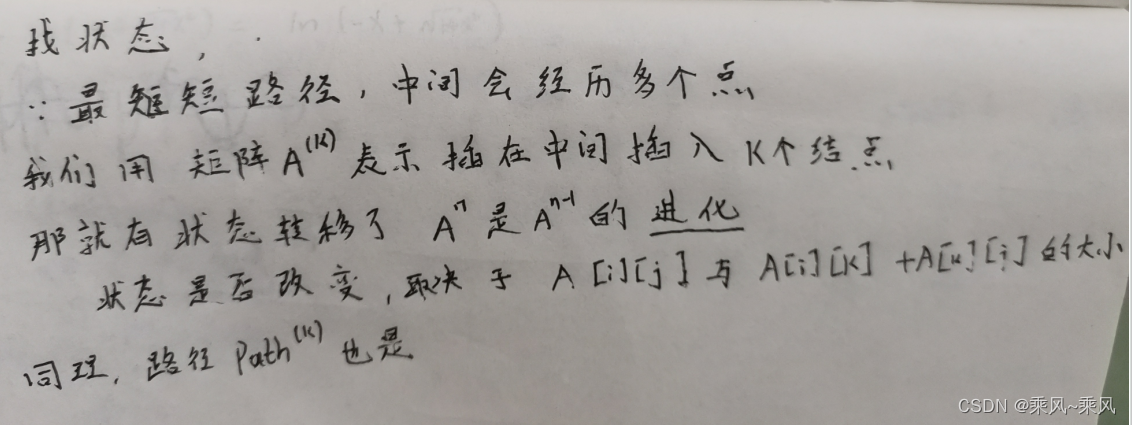 找状态，
∵最短短路径，中间会经历多个点
我们用矩阵A^(K)表示插在中间插入K个结点
那就有状态转移了 A^n是A^n-1的进化
状态是否改变，取决于 A[i][j]与A[i][K]+A[k][j]的大小
同理，路径Path^(k)也是
CSDN @乘风~乘风